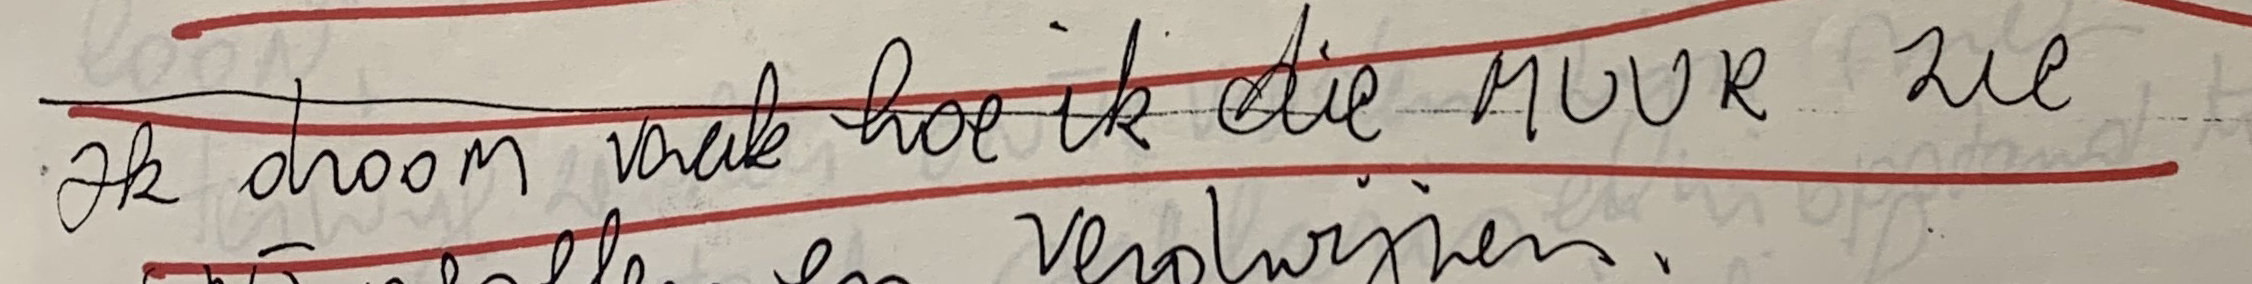 Ik droom vaak hoe ik die MUUR zie
en verdwijnen.